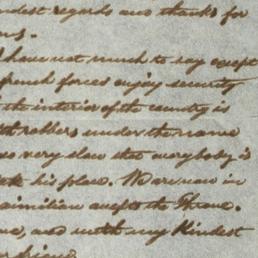 indest regards and thanks for
I have not much to say except
french forces enjoy security
the interior of the country is
th robbers under the name
very slow that everybody is
his place. We are now in
aimilian accepts the Throne.
me, and with my Kindest
friend